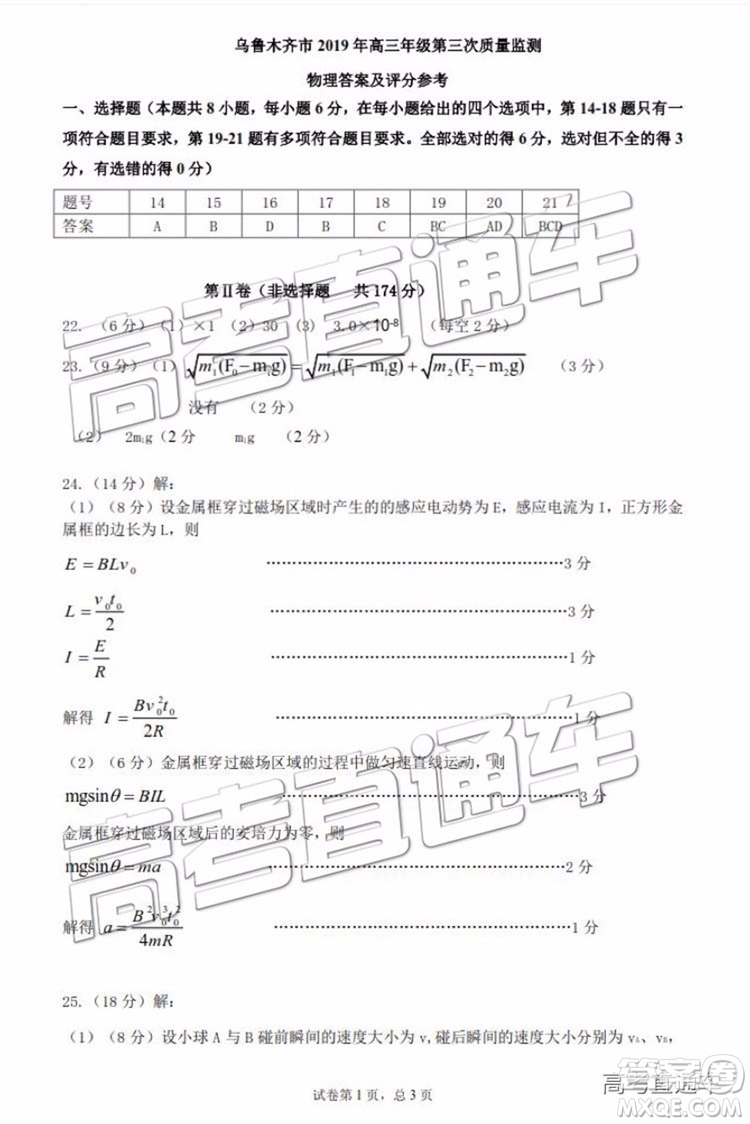 乌鲁木齐市 2019 年高三年级第三次质量监测
物理答案及评分参考
一、选择题（本题共 8 小题，每小题 6 分，在每小题给出的四个选项中，第 14-18 题只有一
项符合题目要求，第 19-21 题有多项符合题目要求。全部选对的得 6 分，选对但不全的得 3
分，有选错的得 0 分）
题号 14 15 16 17 18 19 20 21
答案 A B D B C BC AD BCD
第Ⅱ卷（非选择题 共 174 分）
22. （6 分）（1）×1 （2）30 （3） 3.0×10⁻⁸ （每空 2 分）
23. （9 分）（1） √m₁(F₀−m₁g) = √m₁(F₁−m₁g) + √m₂(F₂−m₂g) （3 分）
没有 （2 分）
（2） 2m₁g（2 分 m₁g （2 分）
24.（14 分）解：
（1）（8 分）设金属框穿过磁场区域时产生的的感应电动势为 E，感应电流为 I，正方形金
属框的边长为 L，则
E = BLv₀ ……………………………………………3 分
L = v₀t₀/2 ……………………………………………3 分
I = E/R ……………………………………………1 分
解得 I = Bv₀²t₀/2R ……………………………………………1 分
（2）（6 分）金属框穿过磁场区域的过程中做匀速直线运动，则
mgsinθ = BIL ……………………………………………3 分
金属框穿过磁场区域后的安培力为零，则
mgsinθ = ma ……………………………………………2 分
解得 a = B²v₀³t₀²/4mR ……………………………………………1 分
25.（18 分）解：
（1）（8 分）设小球 A 与 B 碰前瞬间的速度大小为 v,碰后瞬间的速度大小分别为 vA、vB，
试卷第 1 页，总 3 页
高考直通车
高考直通车
高考直通车
答案圈
MXQE.COM